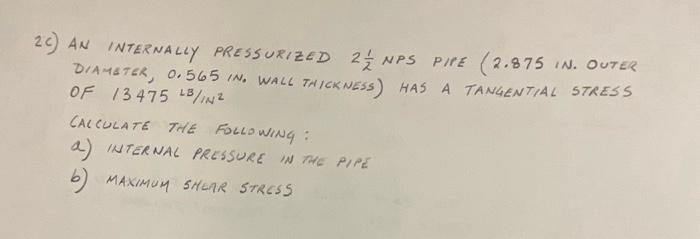 2C) AN INTERNALLY PRESSURIZED 2 1/2 NPS PIPE (2.875 IN. OUTER
DIAMETER, 0.565 IN. WALL THICKNESS) HAS A TANGENTIAL STRESS
OF 13475 LB/IN²
CALCULATE THE FOLLOWING:
a) INTERNAL PRESSURE IN THE PIPE
b) MAXIMUM SHEAR STRESS